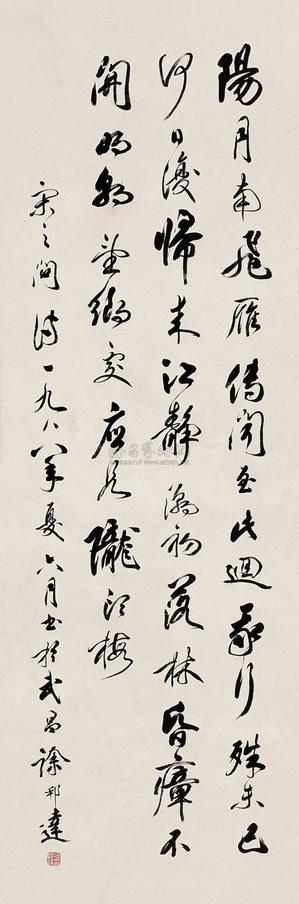 陽月南飛雁傳聞至此迴我行殊未已
何日復歸來江靜潮初落林昏瘴不
開明朝望鄉處應見隴頭梅
宋之問詩一九八八年夏六月書於武昌徐邦達